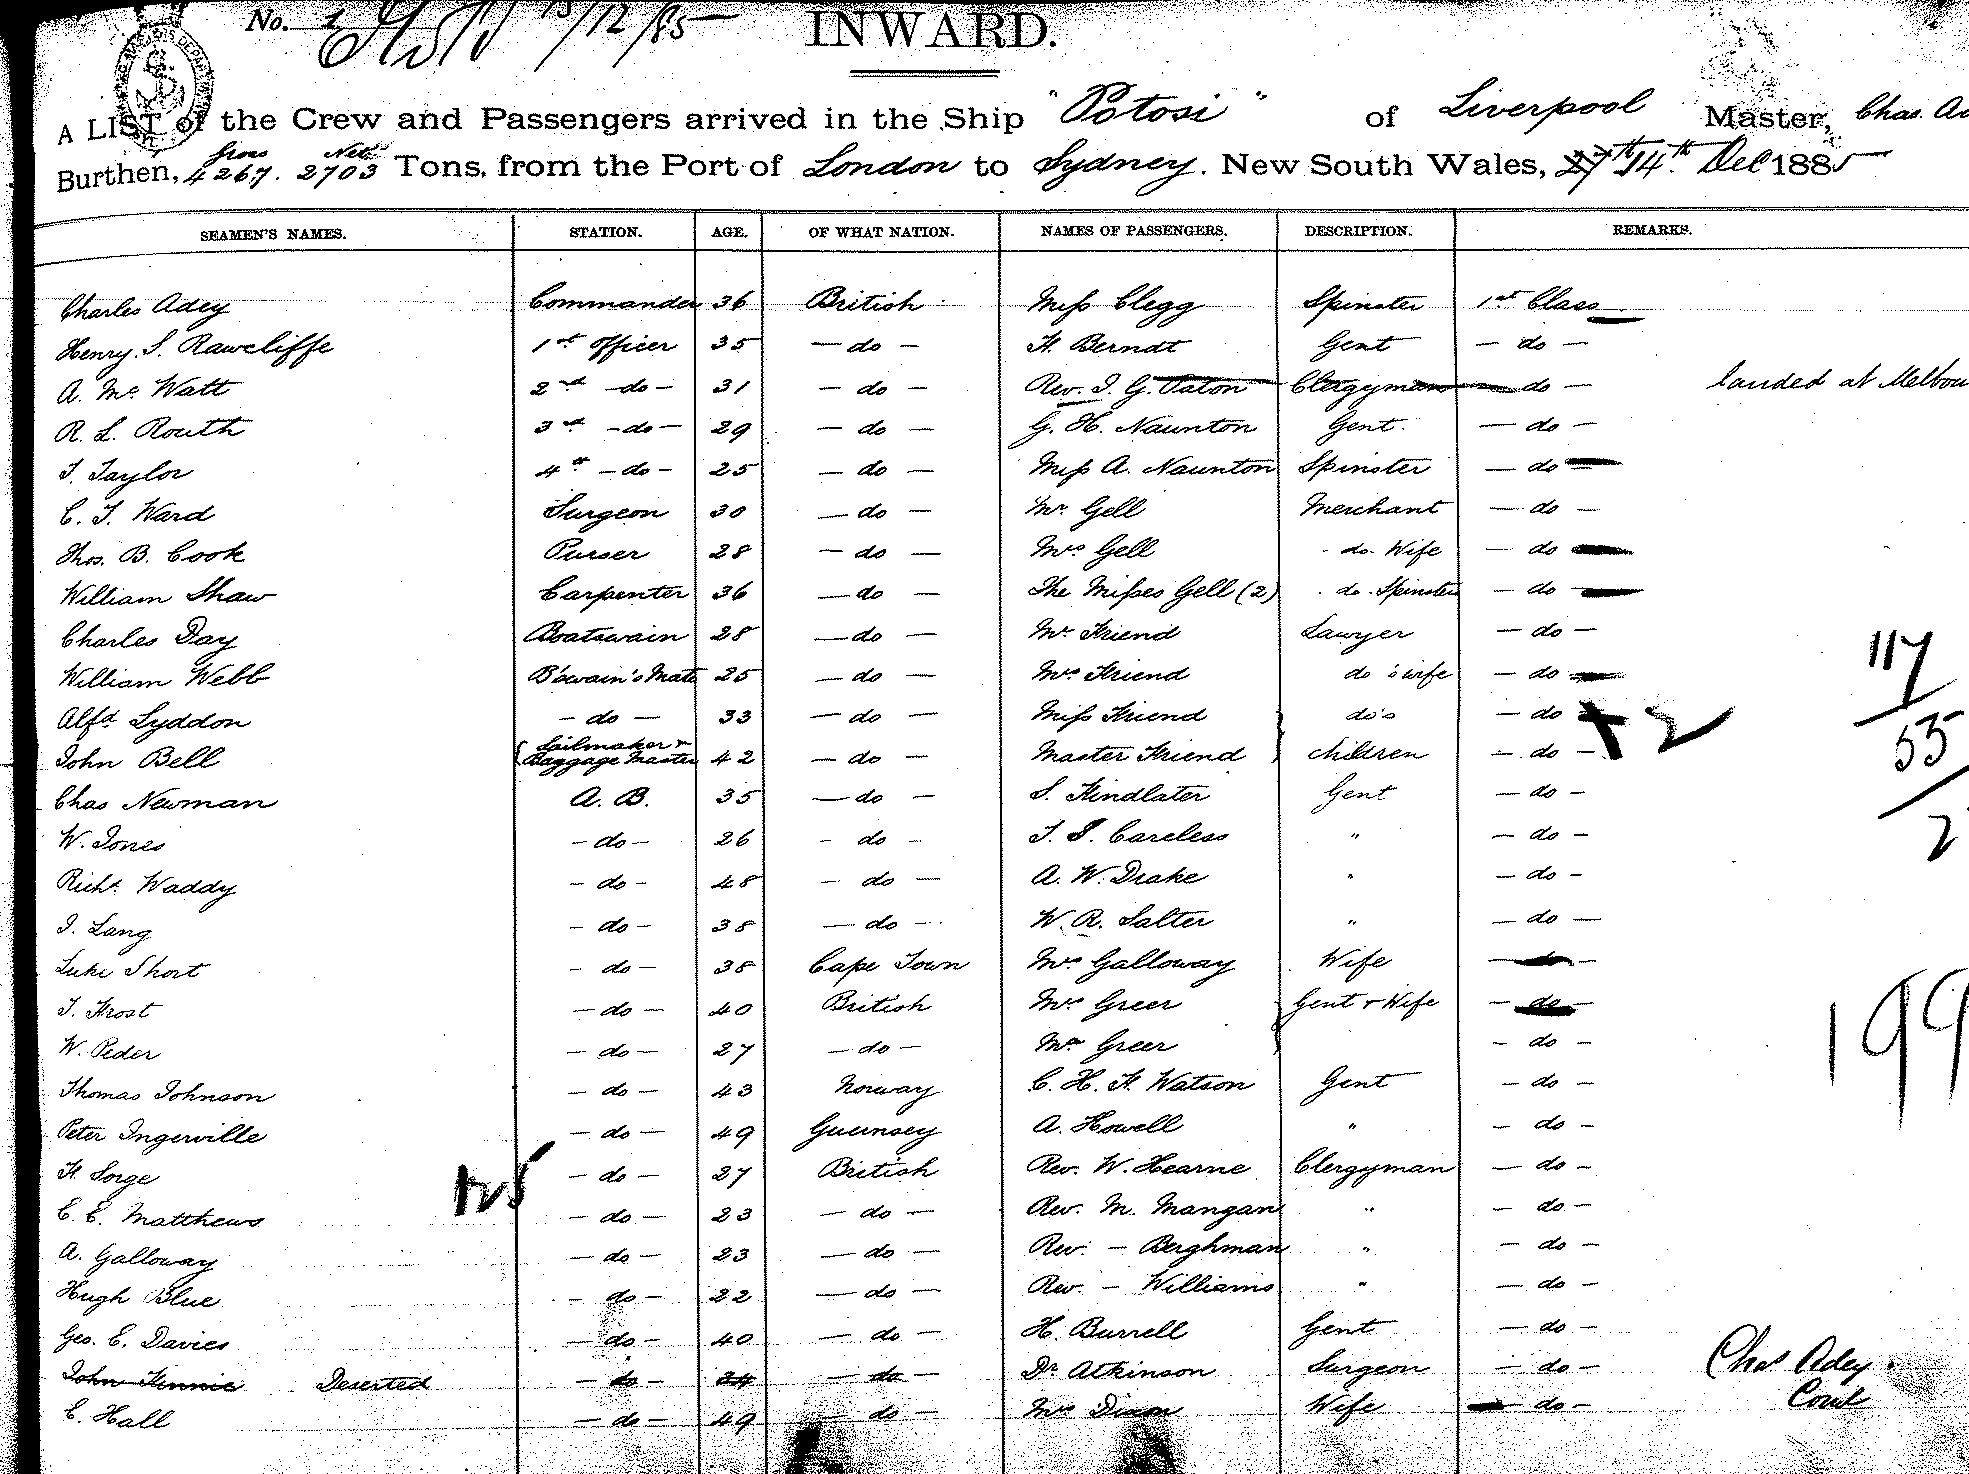 No. 13/12/85 INWARD.
A LIST of the Crew and Passengers arrived in the Ship "Potosi" of Liverpool Master, Chas. Ad
Gross Nett
Burthen, 4267. 2703 Tons, from the Port of London to Sydney. New South Wales, 27th 14th Dec 1885
SEAMEN'S NAMES. STATION. AGE. OF WHAT NATION. NAMES OF PASSENGERS. DESCRIPTION. REMARKS.
Charles Adey Commander 36 British Miss Clegg Spinster 1st Class
Henry. S. Rawcliffe 1st Officer 35 - do - H. Berndt Gent - do -
A. Mc Watt 2nd - do - 31 - do - Rev. J. G. Paton Clergyman - do - landed at Melbou
R. L. Routh 3rd - do - 29 - do - G. H. Naunton Gent. - do -
T. Taylor 4th - do - 25 - do - Miss A. Naunton Spinster - do -
C. T. Ward Surgeon 30 - do - Mr. Gell Merchant - do -
Thos. B. Cook Purser 28 - do - Mrs Gell do. Wife - do -
William Shaw Carpenter 36 - do - The Misses Gell (2) do. Spinsters - do -
Charles Day Boatswain 28 - do - Mr. Friend Lawyer - do -
William Webb B'swain's Mate 25 - do - Mrs Friend do's wife - do -
Alfd Lyddon - do - 33 - do - Miss Friend do's - do -
John Bell Sailmaker & Baggage Master 42 - do - Master Friend children - do -
Chas Newman A. B. 35 - do - S. Findlater Gent - do -
W. Jones - do - 26 - do - T. S. Careless " - do -
Richd. Waddy - do - 48 - do - A. W. Drake " - do -
J. Lang - do - 38 - do - W. R. Salter " - do -
Luke Short - do - 38 Cape Town Mrs Galloway Wife - do -
T. Frost - do - 40 British Mrs Greer Gent & Wife - do -
W. Peder - do - 27 - do - Mr Greer - do -
Thomas Johnson - do - 43 Norway C. H. F. Watson Gent - do -
Peter Ingerville - do - 49 Guernsey A. Howell " - do -
F. Sorge - do - 27 British Rev. W. Hearne Clergyman - do -
C. E. Matthews - do - 23 - do - Rev. M. Mangan " - do -
A. Galloway - do - 23 - do - Rev. - Berghman " - do -
Hugh Blue - do - 22 - do - Rev. - Williams " - do -
Geo. E. Davies - do - 40 - do - H. Burrell Gent - do -
John Finnie Deserted - do - 24 - do - Dr. Atkinson Surgeon - do - Chas Adey.
E. Hall - do - 49 - do - Mrs Dixon Wife - do -
117
55
2
199
125